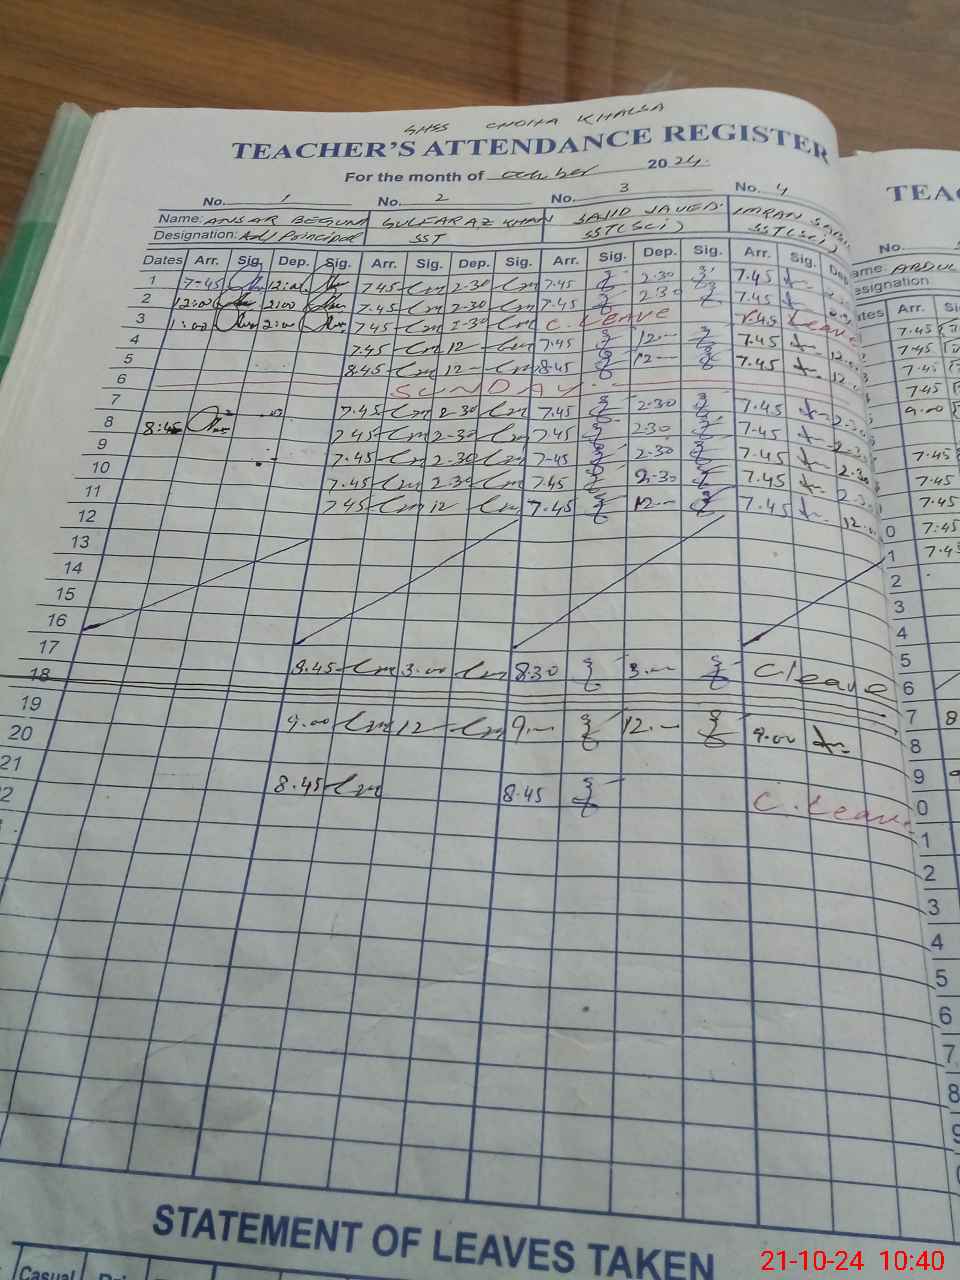 GHSS CHOHA KHALSA
TEACHER'S ATTENDANCE REGISTER
For the month of october 2024.
No. 1 No. 2 No. 3 No. 4
Name: ANSAR BEGUM GULFARAZ KHAN SAJID JAVED. IMRAN
Designation: Principal SST SST(Sci) SST(Sci)
Dates Arr. Sig. Dep. Sig. Arr. Sig. Dep. Sig. Arr. Sig. Dep. Sig. Arr. Sig. Dep
1 7-45 12:00 7.45 2.30 7.45 2.30 7.45
2 12:00 2:00 7.45 2.30 7.45 2.30 7.45
3 1:00 2:00 7.45 2.30 C. LEAVE Leave
4 7.45 12 7.45 12-- 7.45 12.
5 8.45 12 8.45 12-- 7.45 12.
6 SUNDAY.
7 7.45 2-30 7.45 2.30 7.45 2.30
8 8:45 7.45 2-30 7.45 2.30 7.45 2.30
9 7.45 2-30 7-45 2.30 7.45 2.30
10 7.45 2.30 7.45 2.30 7.45 2.30
11 7.45 12 7.45 12-- 7.45 12.
12
13
14
15
16
17
18 8.45 3.00 8.30 3.-- C leave
19
20 9.00 12 9.-- 12.-- 9.00
21 8.45 8.45 C. Leave
STATEMENT OF LEAVES TAKEN
Casual
TEAC
No.
ame: ABDUL
esignation
ates Arr.
7.45
7.45
7.45
7.45
9.00
7.45
7.45
7.45
0 7:45
1 7.45
2
3
4
5
6
7
8
9
0
1
2
3
4
5
6
7
8
9
21-10-24 10:40